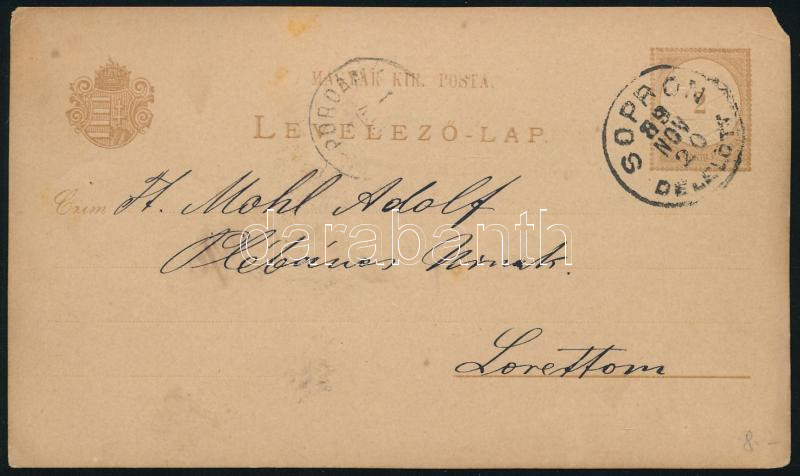 MAGYAR KIR. POSTA.
LEVELEZŐ-LAP.
2
SOPRON
89
NOV
20
DELELŐTT
Czim Ft. Mohl Adolf
Plébános Úrnak.
Lorettom
darabanth
8.-